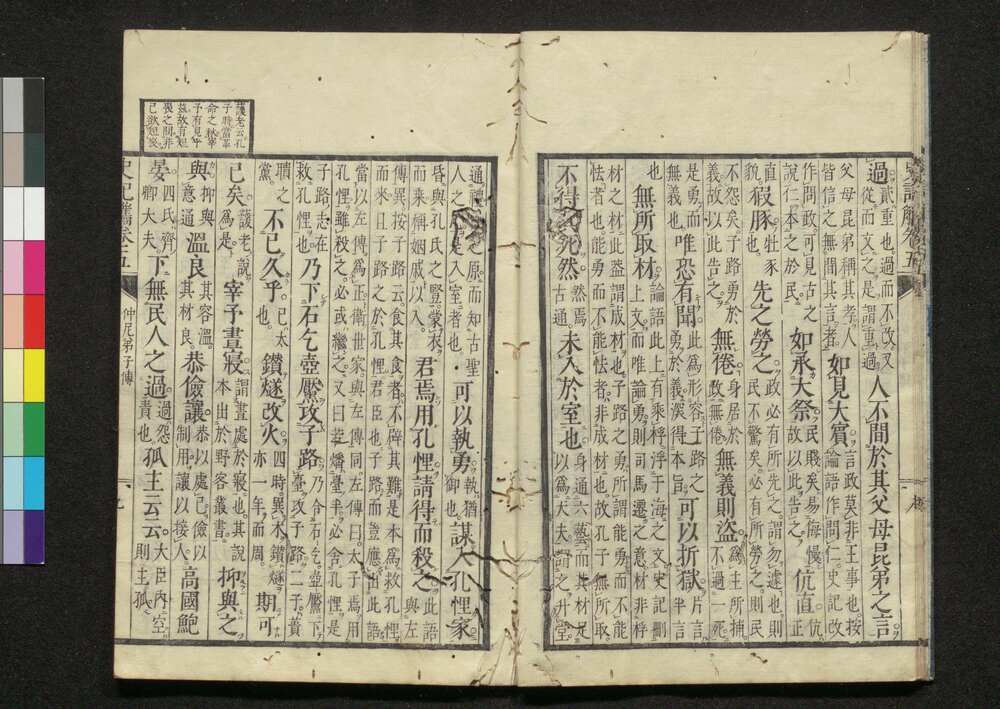 過貳重也過而不改又
從而文之是謂重過
人不間於其父母昆弟之言
父母昆弟稱其孝人
皆信之無間其言者
如見大賓
言政莫非王事也按
論語作問仁史記改
作問政可見古之
說仁本之於民
如承大祭
民賤矣易侮慢
故以此告之
伉直
伉
正
直也則
貌
豭豚
牡豕
也
先之勞之
政必有所先之謂勿遽也則
民不驚矣必有所勞之則民
不怨矣子路勇於
義故以此告之
無倦
身居於
數無倦
無義則盜
爲主所捕
不過一死
是勇而
無義也
唯恐有聞
此爲形容子路之
勇於義深得本旨
可以折獄
片言
半言
也
無所取材
論語此上有乘桴浮于海之文史記刪
上文而唯論勇則司馬遷之意材非桴
材之材此蓋謂成材也子路之勇所謂能勇而不能
怯者也能勇而不能怯者非成材也故孔子曰無所取
不得其死然
然焉
古通
未入於室也
身通六藝而其材足
以爲大夫謂之升堂
通禮之原而知古聖
人之是入室者也
可以執勇
執猶
御也
謀入孔悝家
昏與孔氏之豎蒙衣
而來稱姻戚以入
君焉用孔悝請得而殺之
此語
與左
傳異按子路云食其食者不辟其難是本爲救孔悝
而來且子路之於孔悝君臣也子路而豈應出此語
當以左傳爲正衛世家與左傳同左傳曰大子焉用
孔悝雖殺之必或繼之又曰若燔臺半必舍孔悝是
子路志在
救孔悝也
乃下石乞壺黶攻子路
乃令石乞壺黶下
臺攻子路二子蕢
聵之
黨
不已久乎
已太
也
鑽燧改火
四時異木鑽燧
亦一年而周
期可
已矣
護老說
爲是
宰予晝寢
謂晝處於寢也其說
本出於野客叢書
抑與之
與
抑與
意通
溫良
其容溫
其材良
恭儉讓
恭以處己儉以
制用讓以接人
高國鮑
晏
四氏齊
卿大夫
下無民人之過
過怨
責也
孤主云云
大臣內空
則主孤
護老云孔
子時當宰
命之
予有見乎
茲故有短
喪之問非
己欲短喪
仲尼弟子傳
九